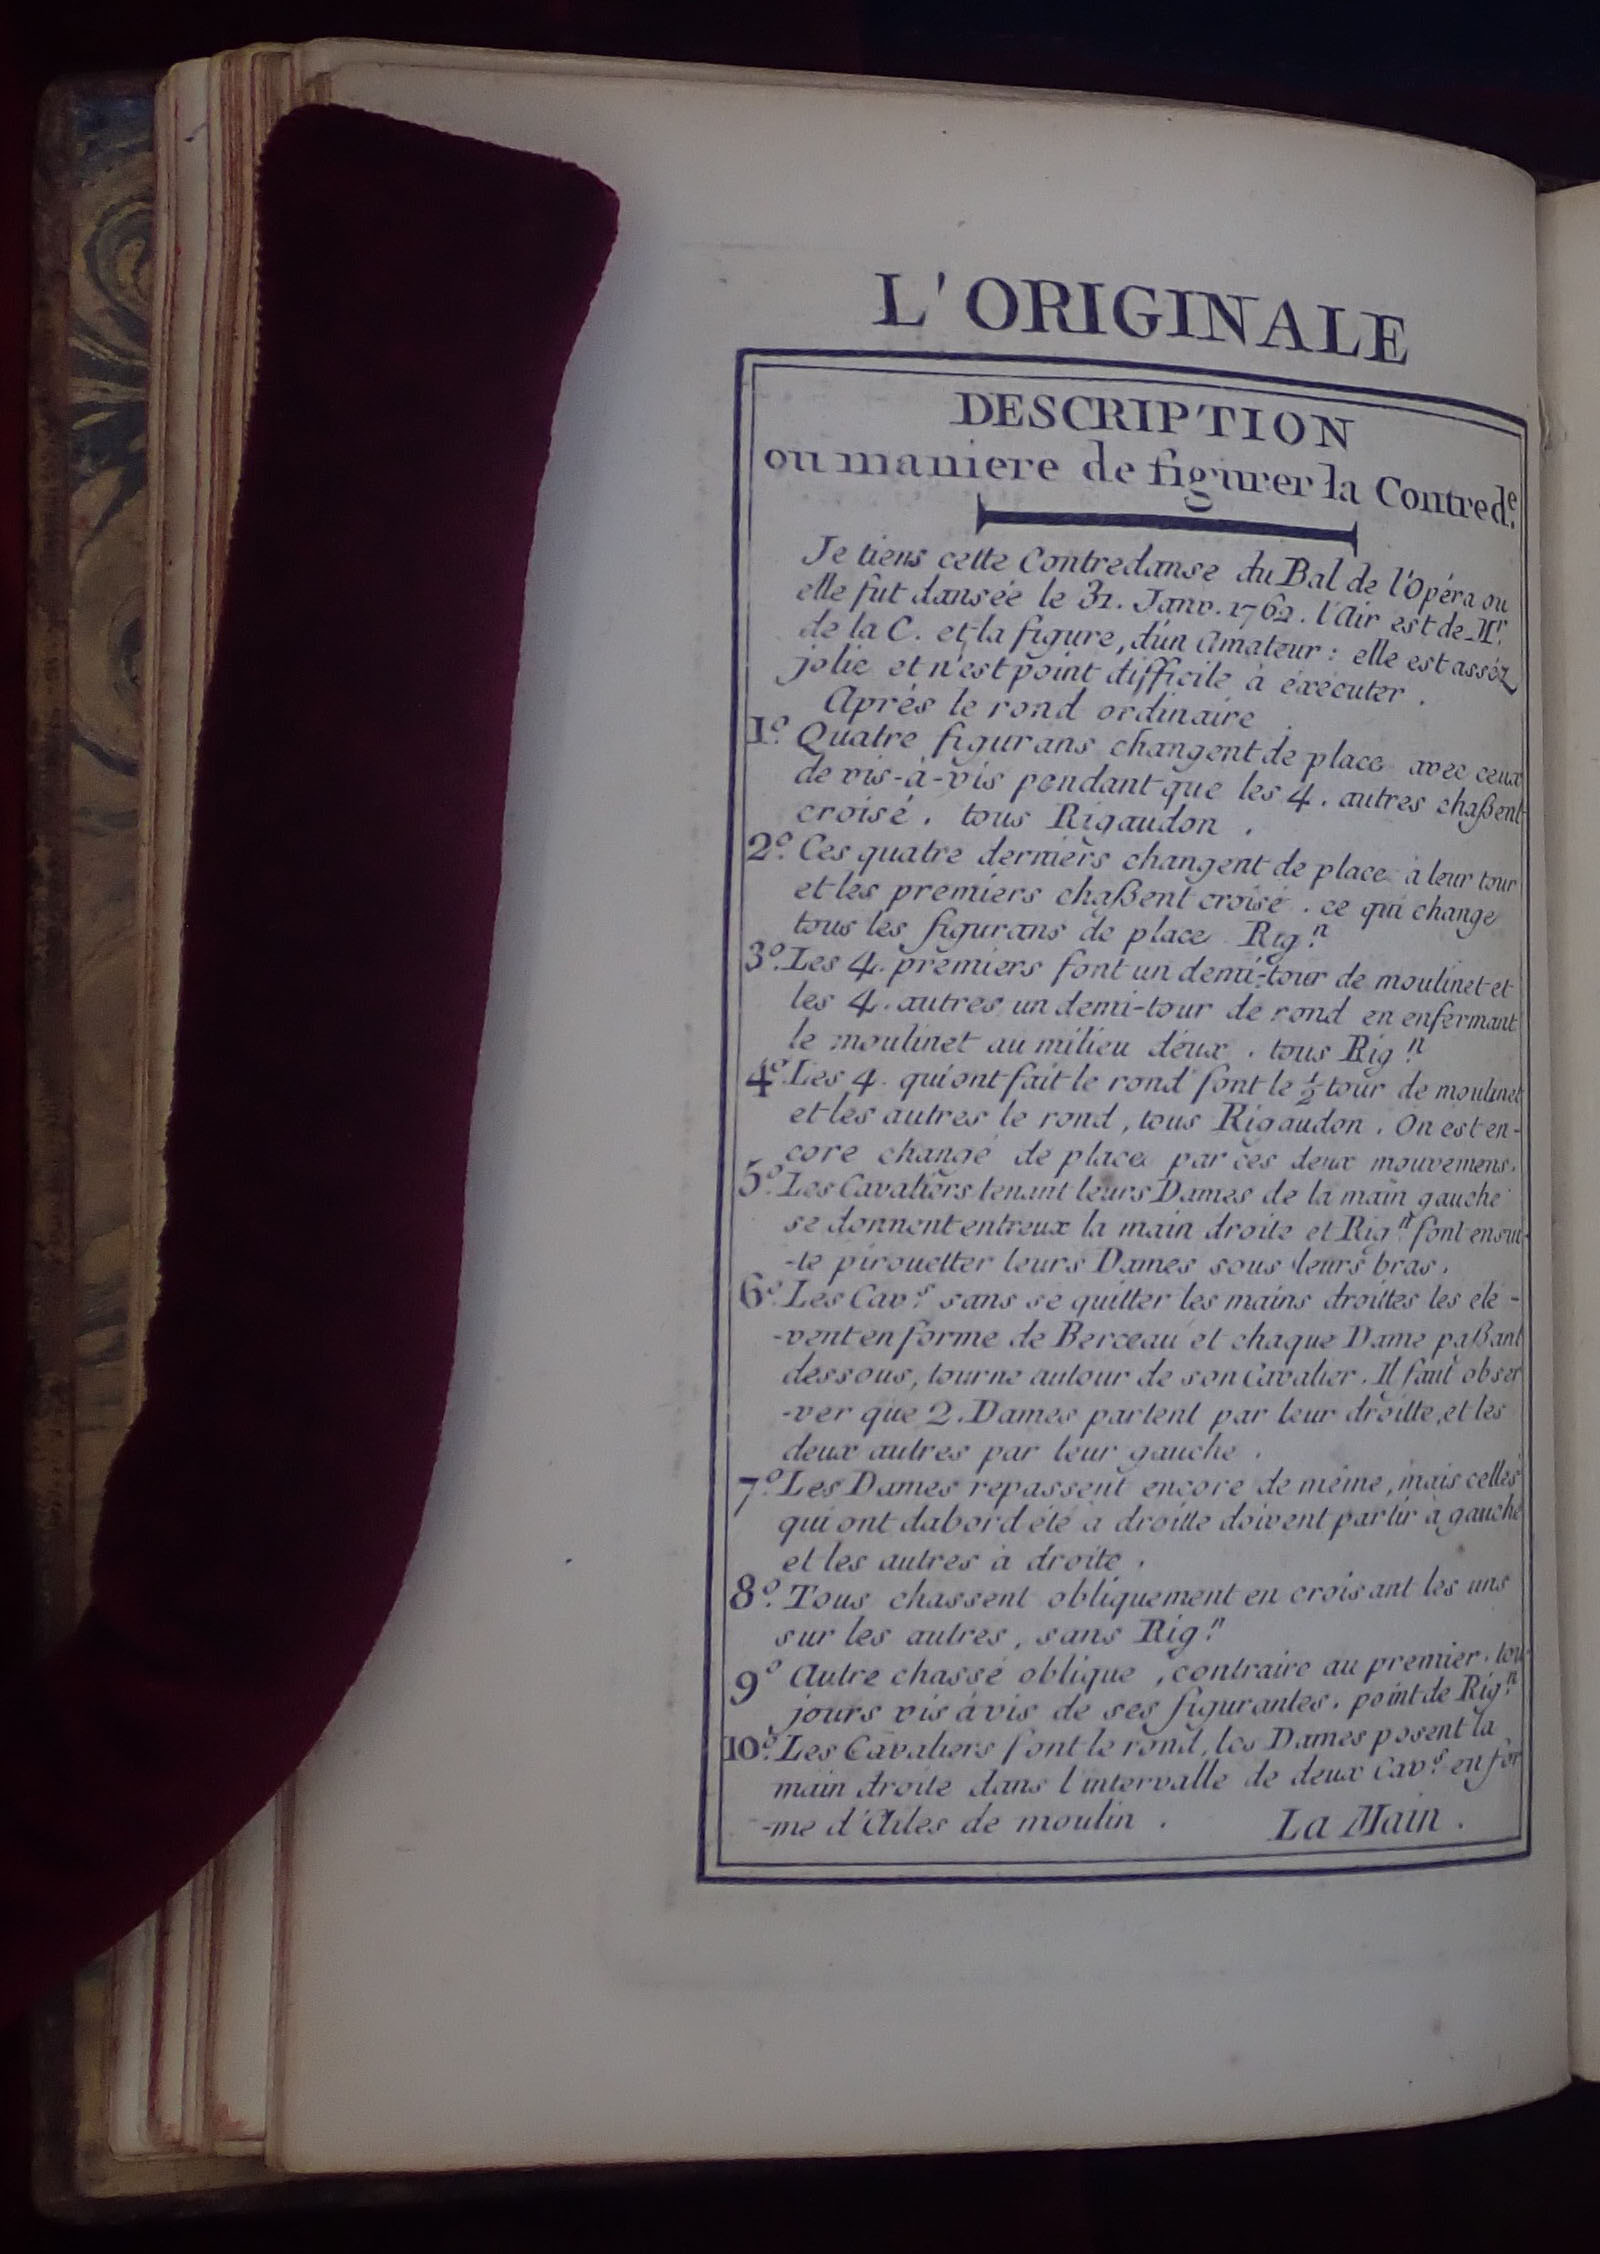 L'ORIGINALE
DESCRIPTION
ou maniere de figurer la Contred.e
Je tiens cette Contredanse du Bal de l'Opéra ou
elle fut dansée le 31. Janv. 1762. l'Air est de Mr.
de la C. et la figure, d'un Amateur : elle est asséz
jolie et n'est point difficile à éxécuter .
Aprés le rond ordinaire .
1.o Quatre figurans changent de place avec ceux
de vis-à-vis pendant que les 4. autres chaßent
croisé . tous Rigaudon .
2.o Ces quatre derniers changent de place à leur tour
et les premiers chaßent croisé . ce qui change
tous les figurans de place Rig.n
3.o Les 4. premiers font un demi-tour de moulinet et
les 4. autres un demi-tour de rond en enfermant
le moulinet au milieu d'eux . tous Rig.n
4.o Les 4. qui ont fait le rond font le ½ tour de moulinet
et les autres le rond, tous Rigaudon . On est en-
core changé de place par ces deux mouvemens.
5.o Les Cavaliers tenant leurs Dames de la main gauche
se donnent entreux la main droite et Rig.n font ensui-
-te pirouetter leurs Dames sous leurs bras .
6.o Les Cav.s sans se quitter les mains droittes les éle-
-vent en forme de Berceau et chaque Dame paßant
dessous, tourne autour de son Cavalier . Il faut obser
-ver que 2. Dames partent par leur droitte, et les
deux autres par leur gauche .
7.o Les Dames repassent encore de même, mais celles
qui ont dabord été à droitte doivent partir à gauche
et les autres à droite .
8.o Tous chassent obliquement en croisant les uns
sur les autres, sans Rig.n
9.o Autre chassé oblique, contraire au premier . tou
jours vis à vis de ses figurantes . point de Rig.n
10.o Les Cavaliers font le rond, les Dames posent la
main droite dans l'intervalle de deux Cav.s en for
-me d'Ailes de moulin . La Main .